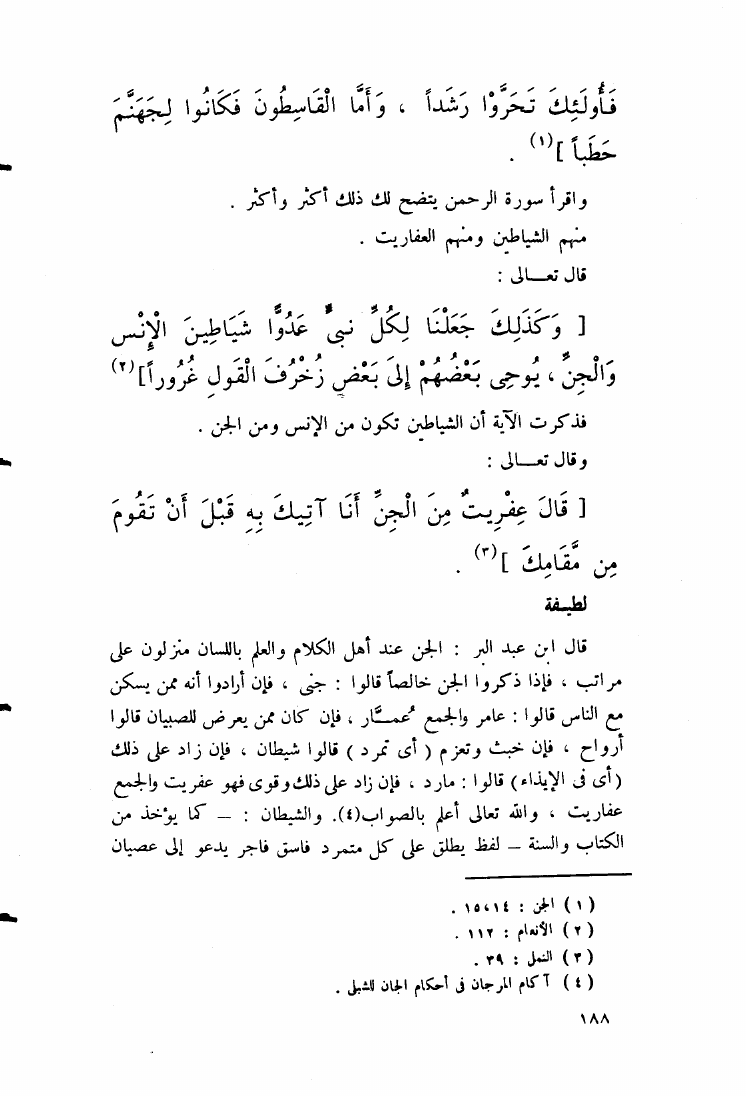 فَأُولَئِكَ تَحَرَّوْا رَشَداً ، وَأَمَّا الْقَاسِطُونَ فَكَانُوا لِجَهَنَّمَ
حَطَباً ](١) .
واقرأ سورة الرحمن يتضح لك ذلك أكثر وأكثر .
منهم الشياطين ومنهم العفاريت .
قال تعـــالى :
[ وَكَذَلِكَ جَعَلْنَا لِكُلِّ نبىٍّ عَدُوًّا شَيَاطِينَ الْإِنْس
وَالْجِنِّ ، يُوحِى بَعْضُهُمْ إِلىَ بَعْضٍ زُخْرُفَ الْقَولِ غُرُوراً](٢)
فذكرت الآية أن الشياطين تكون من الإنس ومن الجن .
وقال تعـــالى :
[ قَالَ عِفْرِيتٌ مِنَ الْجِنِّ أَنَا آتِيكَ بِهِ قَبْلَ أَنْ تَقُومَ
مِن مَّقَامِكَ ](٣) .
لطيـفة
قال ابن عبد البر : الجن عند أهل الكلام والعلم باللسان منزلون على
مراتب ، فإذا ذكروا الجن خالصاً قالوا : جنى ، فإن أرادوا أنه ممن يسكن
مع الناس قالوا : عامر والجمع عُمـَّار ، فإن كان ممن يعرض للصبيان قالوا
أرواح ، فإن خبث وتعزم ( أى تمرد ) قالوا شيطان ، فإن زاد على ذلك
(أى فى الإيذاء) قالوا : مارد ، فإن زاد على ذلك وقوى فهو عفريت والجمع
عفاريت ، والله تعالى أعلم بالصواب(٤). والشيطان : – كما يؤخذ من
الكتاب والسنة – لفظ يطلق على كل متمرد فاسق فاجر يدعو إلى عصيان
(١) الجن : ١٤،١٥ .
(٢) الأنعام : ١١٢ .
(٣) النمل : ٣٩ .
(٤) آكام المرجان فى أحكام الجان للشبلى .
١٨٨